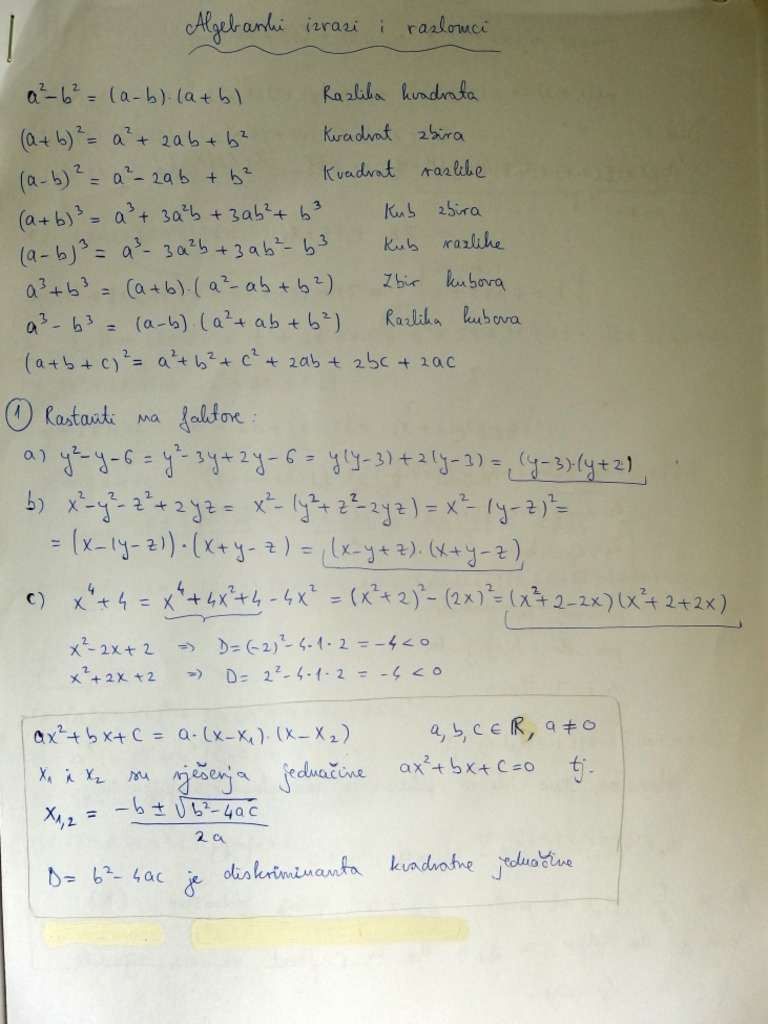 Algebarski izrazi i razlomci
a² - b² = (a-b)·(a+b) Razlika kvadrata
(a+b)² = a² + 2ab + b² Kvadrat zbira
(a-b)² = a² - 2ab + b² Kvadrat razlike
(a+b)³ = a³ + 3a²b + 3ab² + b³ Kub zbira
(a-b)³ = a³ - 3a²b + 3ab² - b³ Kub razlike
a³ + b³ = (a+b)·(a² - ab + b²) Zbir kubova
a³ - b³ = (a-b)·(a² + ab + b²) Razlika kubova
(a+b+c)² = a² + b² + c² + 2ab + 2bc + 2ac
1 Rastaviti na faktore:
a) y² - y - 6 = y² - 3y + 2y - 6 = y(y-3) + 2(y-3) = (y-3)·(y+2)
b) x² - y² - z² + 2yz = x² - (y² + z² - 2yz) = x² - (y-z)² =
= (x-(y-z))·(x+y-z) = (x-y+z)·(x+y-z)
c) x⁴ + 4 = x⁴ + 4x² + 4 - 4x² = (x²+2)² - (2x)² = (x²+2-2x)(x²+2+2x)
x² - 2x + 2 ⇒ D = (-2)² - 4·1·2 = -4 < 0
x² + 2x + 2 ⇒ D = 2² - 4·1·2 = -4 < 0
ax² + bx + c = a·(x-x₁)·(x-x₂) a, b, c ∈ ℝ, a ≠ 0
x₁ i x₂ su rješenja jednačine ax² + bx + c = 0 tj.
x₁,₂ = (-b ± √(b² - 4ac)) / 2a
D = b² - 4ac je diskriminanta kvadratne jednačine